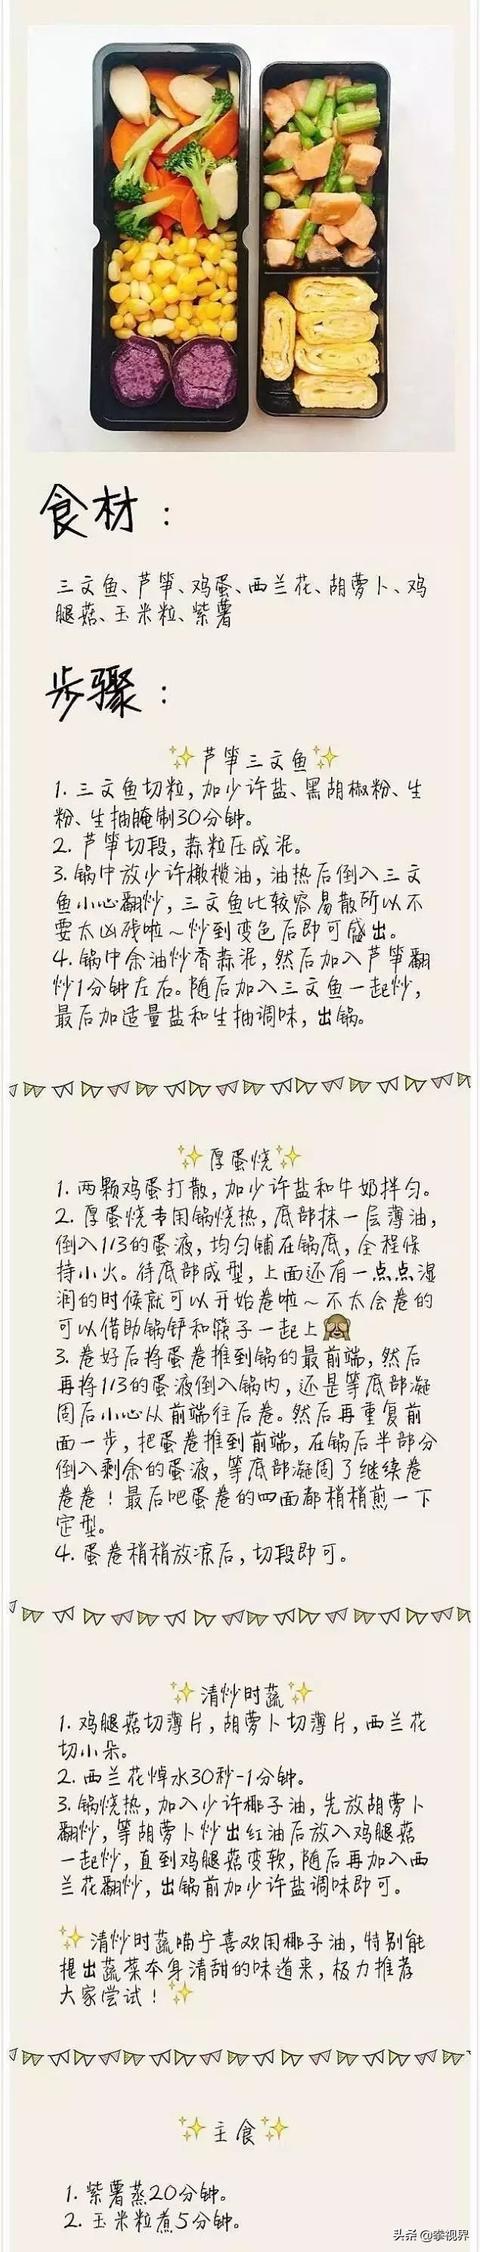 食材：
三文鱼、芦笋、鸡蛋、西兰花、胡萝卜、鸡
腿菇、玉米粒、紫薯
步骤：
芦笋三文鱼
1. 三文鱼切粒，加少许盐、黑胡椒粉、生
粉、生抽腌制30分钟。
2. 芦笋切段，蒜粒压成泥。
3. 锅中放少许橄榄油，油热后倒入三文
鱼小心翻炒，三文鱼比较容易散所以不
要太凶残啦～炒到变色后即可盛出。
4. 锅中余油炒香蒜泥，然后加入芦笋翻
炒1分钟左右。随后加入三文鱼一起炒，
最后加适量盐和生抽调味，出锅。
厚蛋烧
1. 两颗鸡蛋打散，加少许盐和牛奶拌匀。
2. 厚蛋烧专用锅烧热，底部抹一层薄油，
倒入1/3的蛋液，均匀铺在锅底，全程保
持小火。待底部成型，上面还有一点点湿
润的时候就可以开始卷啦～不太会卷的
可以借助锅铲和筷子一起上🙈
3. 卷好后将蛋卷推到锅的最前端，然后
再将1/3的蛋液倒入锅内，还是等底部凝
固后小心从前端往后卷。然后再重复前
面一步，把蛋卷推到前端，在锅后半部分
倒入剩余的蛋液，等底部凝固了继续卷
卷卷！最后吧蛋卷的四面都稍稍煎一下
定型。
4. 蛋卷稍稍放凉后，切段即可。
清炒时蔬
1. 鸡腿菇切薄片，胡萝卜切薄片，西兰花
切小朵。
2. 西兰花焯水30秒-1分钟。
3. 锅烧热，加入少许椰子油，先放胡萝卜
翻炒，等胡萝卜炒出红油后放入鸡腿菇
一起炒，直到鸡腿菇变软，随后再加入西
兰花翻炒，出锅前加少许盐调味即可。
清炒时蔬喵宁喜欢用椰子油，特别能
提出蔬菜本身清甜的味道来，极力推荐
大家尝试！
主食
1. 紫薯蒸20分钟。
2. 玉米粒煮5分钟。
头条@攀视界